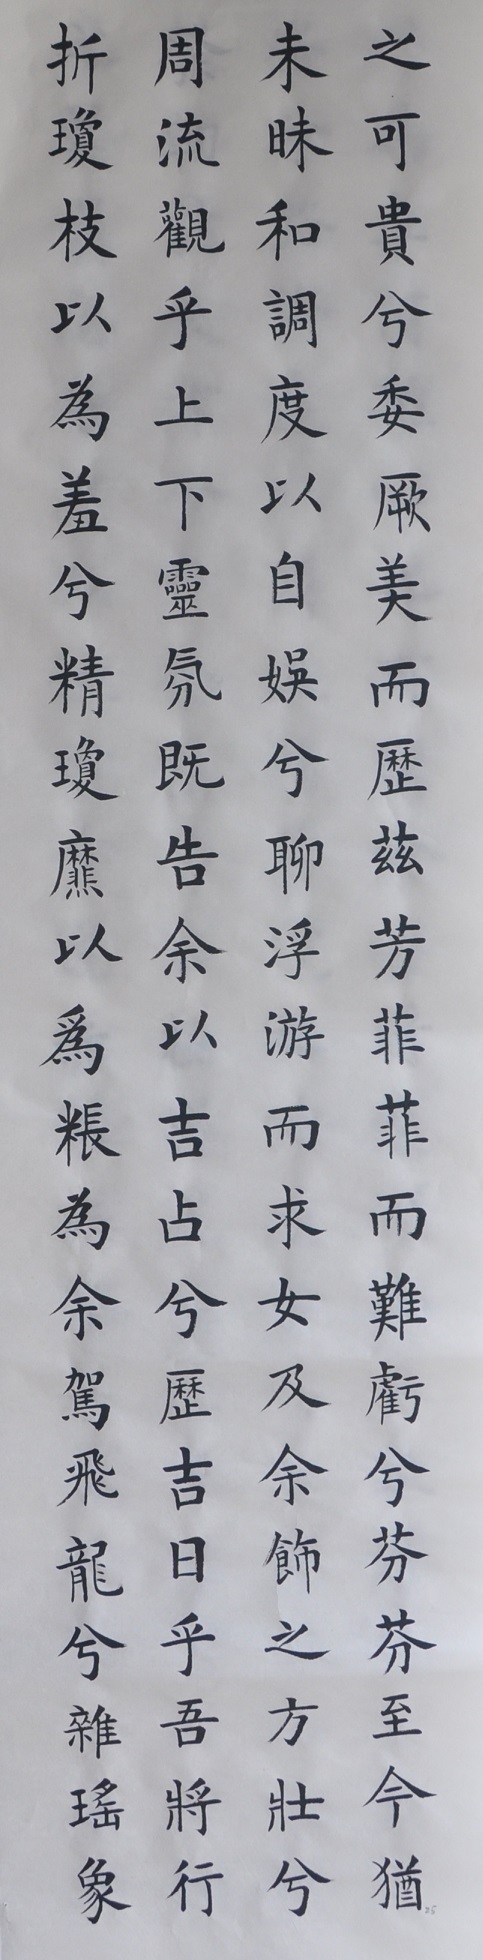 之可貴兮委厥美而歷茲芳菲菲而難虧兮芬芬至今猶
未昧和調度以自娛兮聊浮游而求女及余飾之方壯兮
周流觀乎上下靈氛既告余以吉占兮歷吉日乎吾將行
折瓊枝以為羞兮精瓊爢以爲粻為余駕飛龍兮雜瑤象